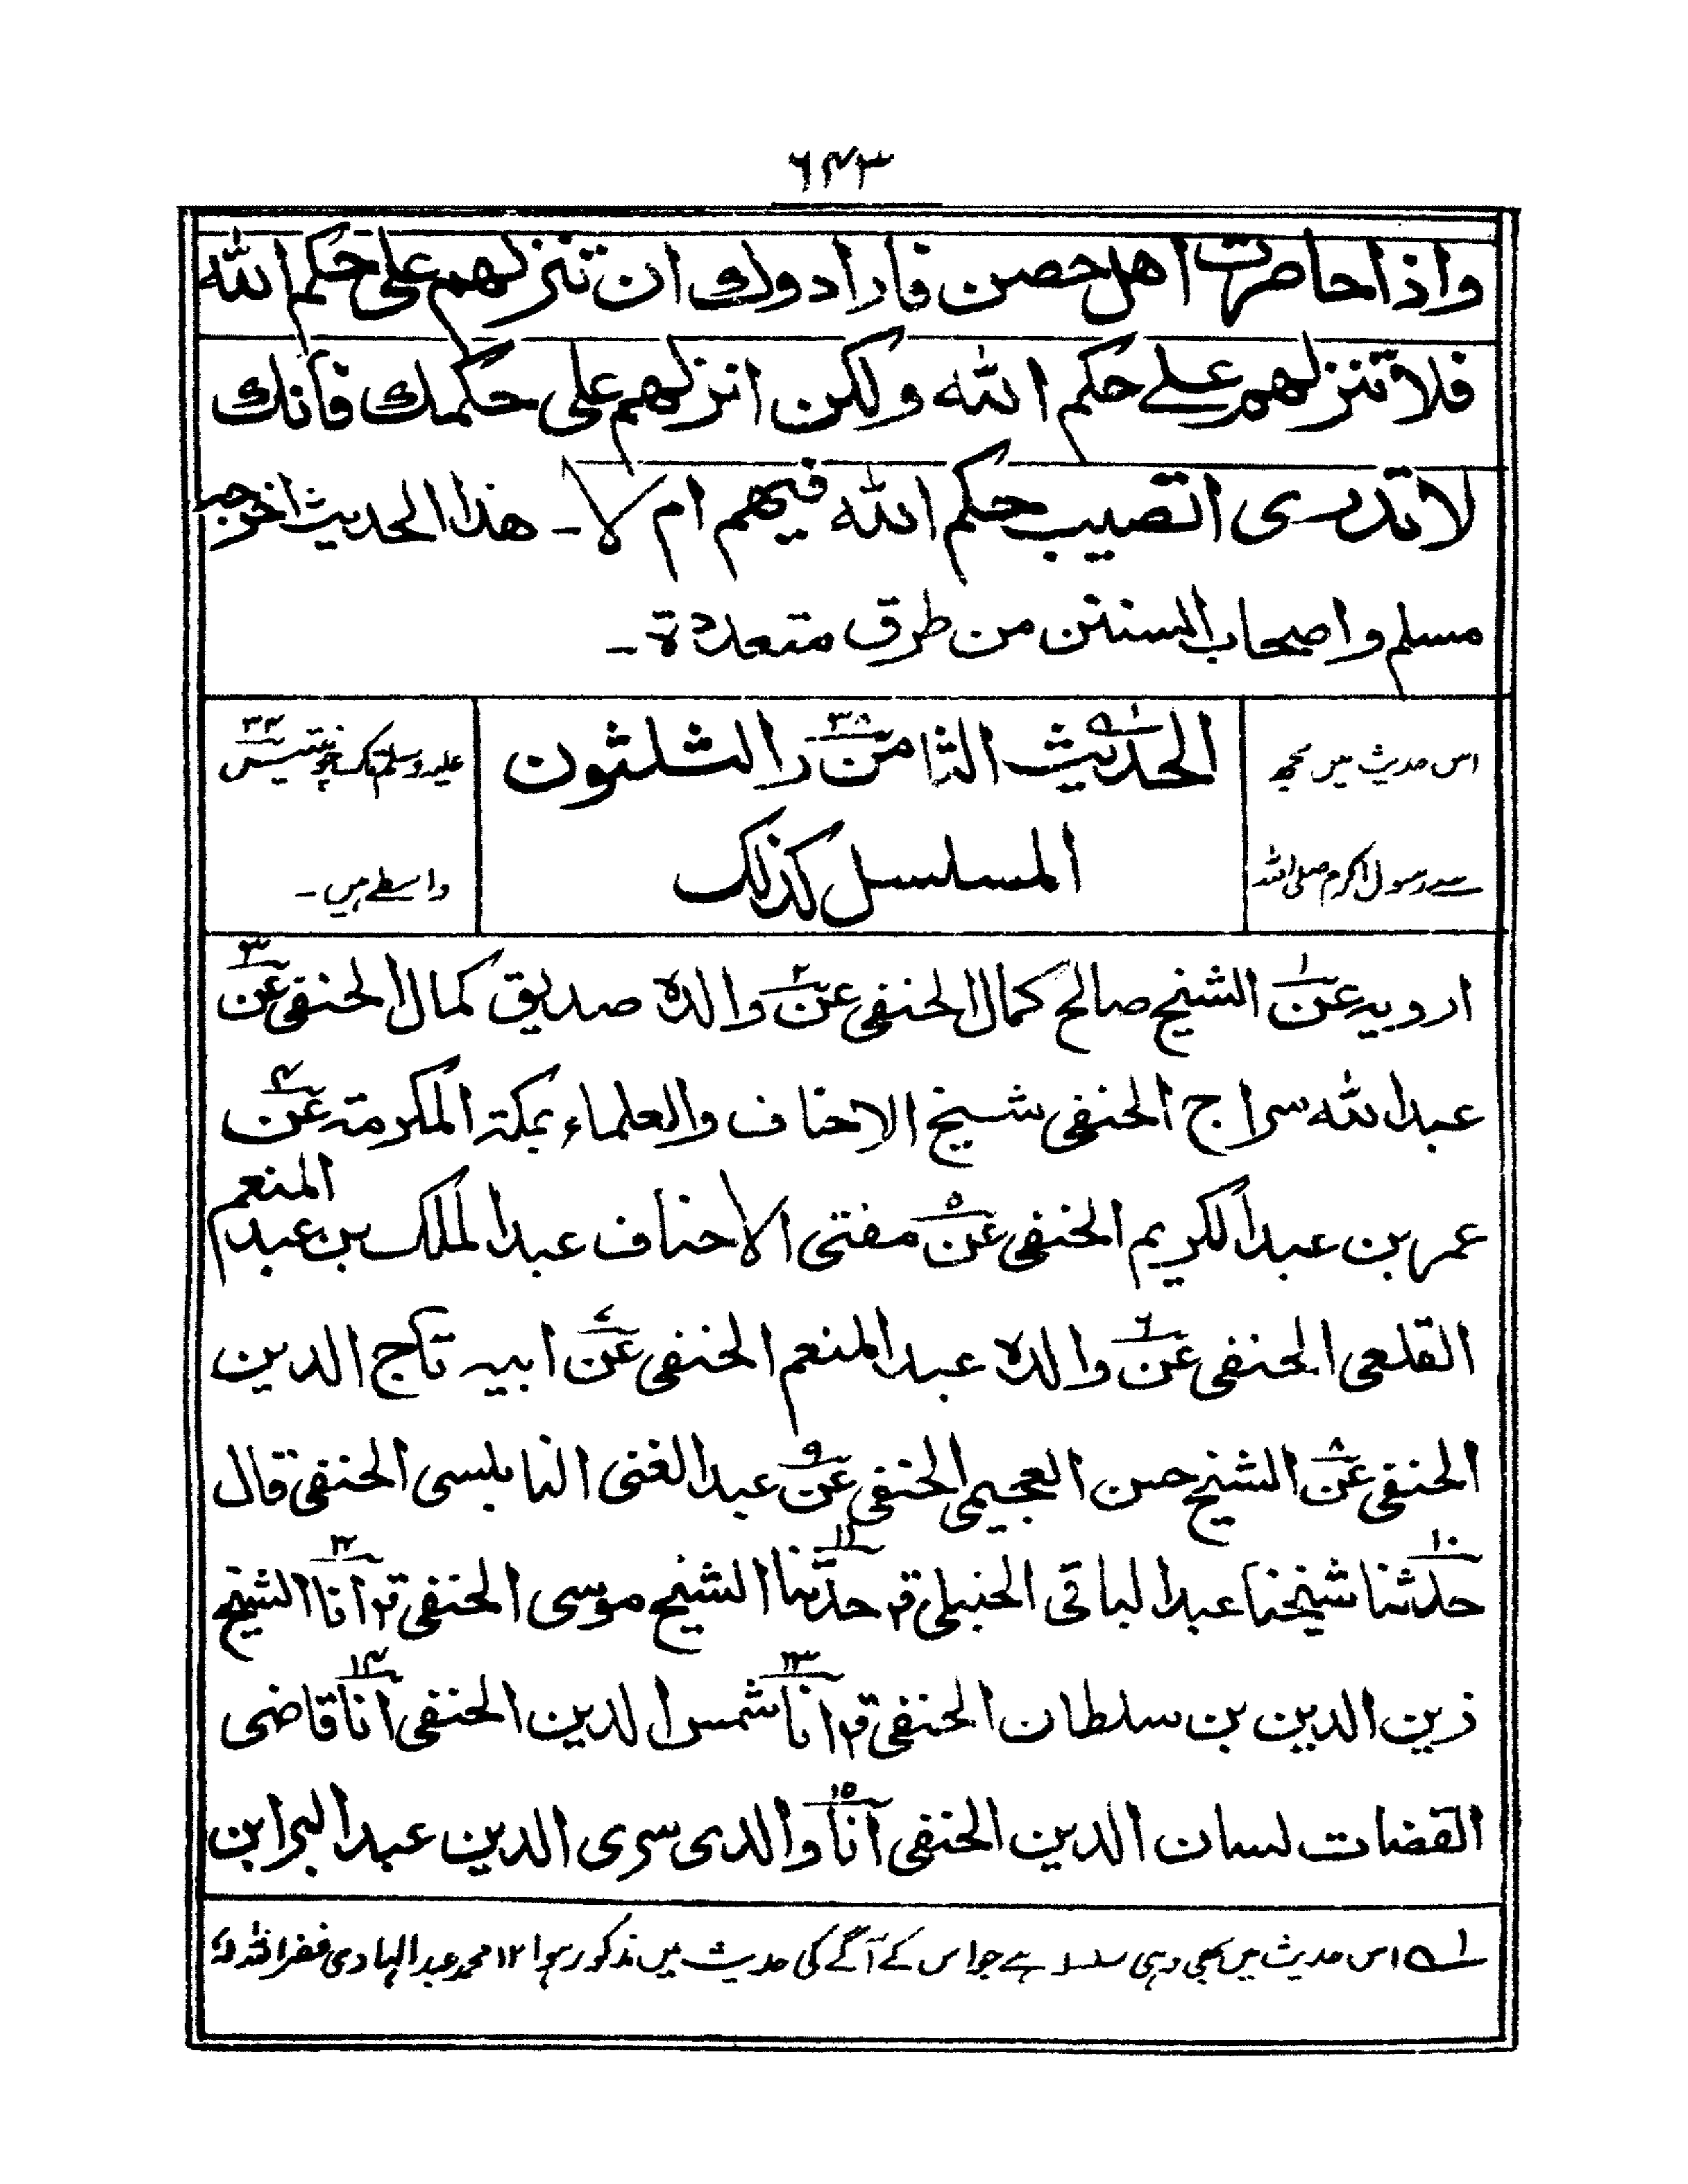 ٦٤٣
واذا حاصرت اهل حصن فارادوك ان تنزلهم على حكم الله
فلا تنزلهم علے حكم الله ولكن انزلهم على حكمك فانك
لا تدرى اتصيب حكم الله فيهم ام لا۔ هذا الحديث اخرجه
مسلم واصحاب السنن من طرق متعددة۔
اس حدیث میں مجھ
سے رسول اکرم صلی اللہ
الحديث الثامن والثلثون ٣٨
المسلسل كذلك
علیہ وسلم تک چونتیس ٣٤
واسطے ہیں۔
ارويه عن١ الشيخ صالح كمال الحنفى عن٢ والده صديق كمال الحنفى عن٣
عبد الله سراج الحنفى شيخ الاحناف والعلماء بمكة المكرمة عن٤
عمر بن عبد الكريم الحنفى عن٥ مفتى الاحناف عبد الملك بن عبد المنعم
القلعى الحنفى عن٦ والده عبد المنعم الحنفى عن٧ ابيه تاج الدين
الحنفى عن٨ الشيخ حسن العجيمى الحنفى عن٩ عبد الغنى النابلسى الحنفى قال
حدثنا١٠ شيخنا عبد الباقى الحنبلى قر حدثنا١١ الشيخ موسى الحنفى قر انا١٢ الشيخ
زين الدين بن سلطان الحنفى قر انا١٣ شمس الدين الحنفى انا١٤ قاضى
القضات لسان الدين الحنفى انا١٥ والدى سرى الدين عبد البر ابن
لہ اس حدیث میں بھی وہی سلسلہ ہے جو اس کے آگے کی حدیث میں مذکور ہوا ١٢ محمد عبد الہادی غفر اللہ لہ